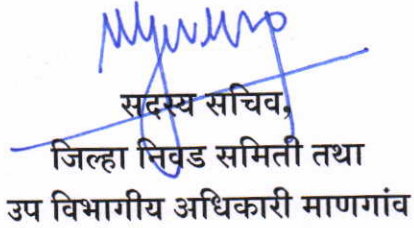 सदस्य सचिव,
जिल्हा निवड समिती तथा
उप विभागीय अधिकारी माणगांव